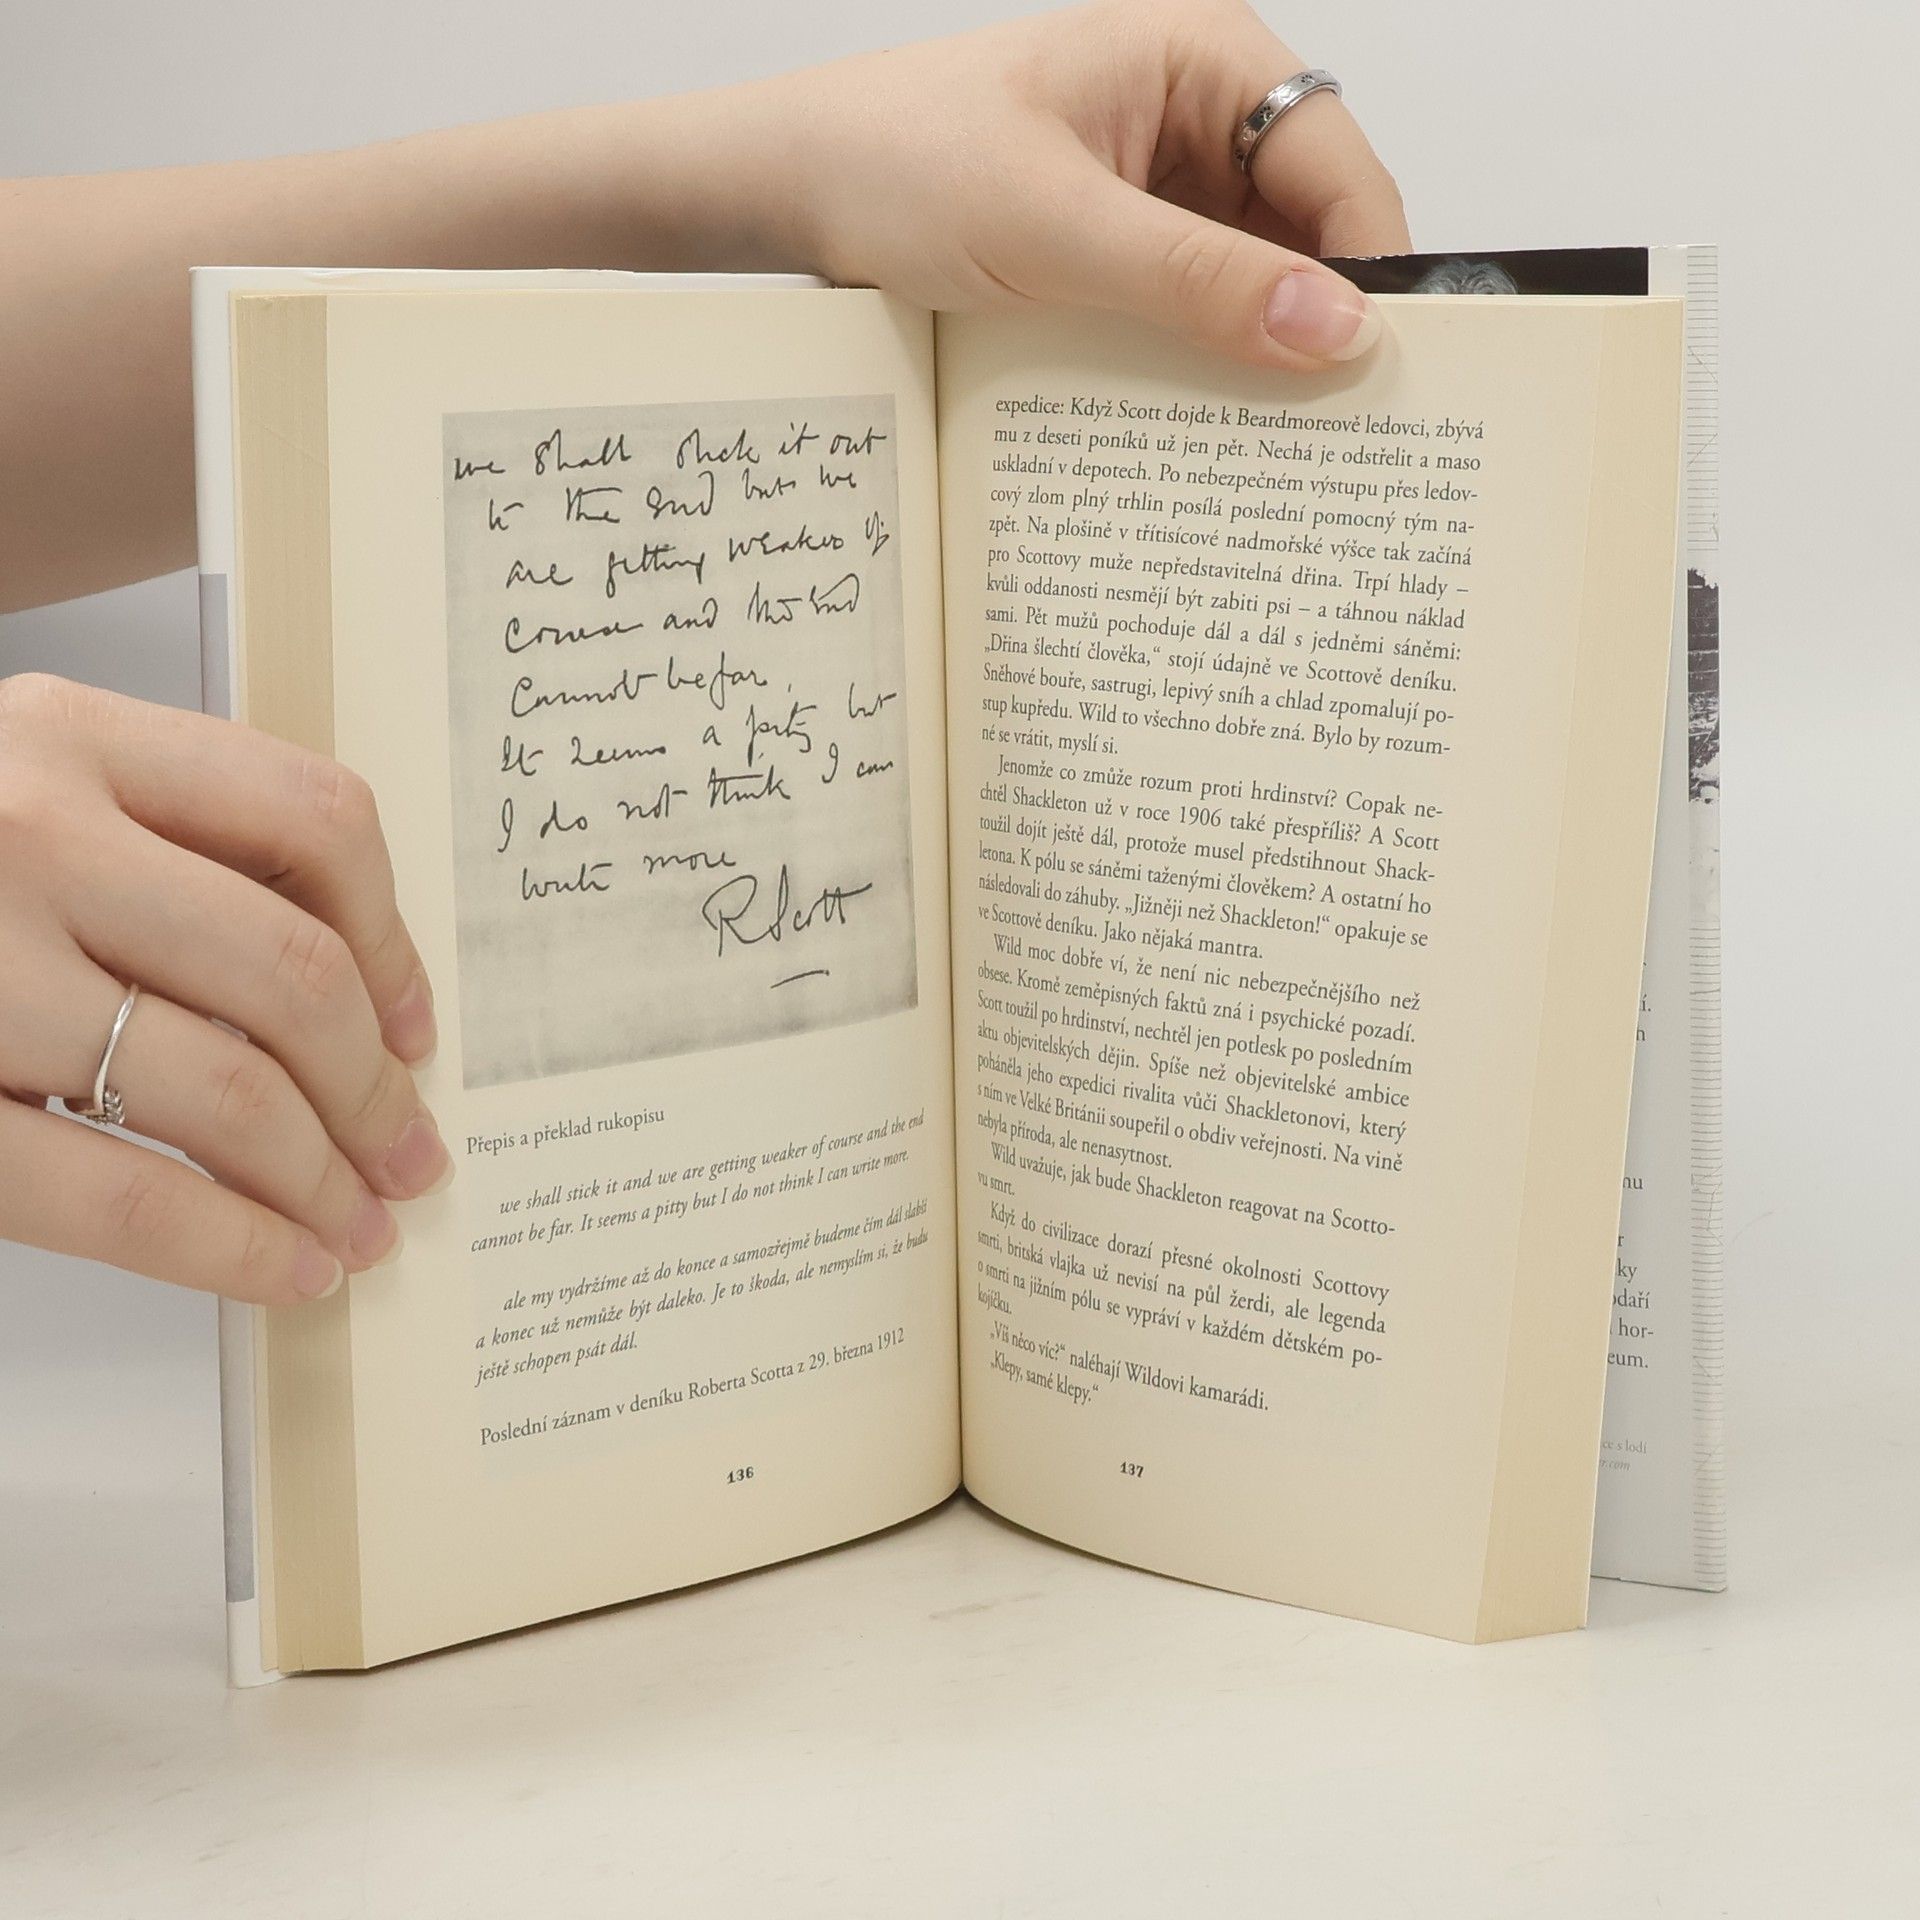 we shall stick it out
to the end but we
are getting weaker of
course and the end
cannot be far.
It seems a pity but
I do not think I can
write more
R Scott
Přepis a překlad rukopisu
we shall stick it and we are getting weaker of course and the end
cannot be far. It seems a pitty but I do not think I can write more.
ale my vydržíme až do konce a samozřejmě budeme čím dál slabší
a konec už nemůže být daleko. Je to škoda, ale nemyslím si, že budu
ještě schopen psát dál.
Poslední záznam v deníku Roberta Scotta z 29. března 1912
136
expedice: Když Scott dojde k Beardmoreově ledovci, zbývá
mu z deseti poníků už jen pět. Nechá je odstřelit a maso
uskladní v depotech. Po nebezpečném výstupu přes ledov-
cový zlom plný trhlin posílá poslední pomocný tým na-
zpět. Na plošině v třítisícové nadmořské výšce tak začíná
pro Scottovy muže nepředstavitelná dřina. Trpí hlady –
kvůli oddanosti nesmějí být zabiti psi – a táhnou náklad
sami. Pět mužů pochoduje dál a dál s jedněmi sáněmi:
„Dřina šlechtí člověka,“ stojí údajně ve Scottově deníku.
Sněhové bouře, sastrugi, lepivý sníh a chlad zpomalují po-
stup kupředu. Wild to všechno dobře zná. Bylo by rozum-
né se vrátit, myslí si.
Jenomže co zmůže rozum proti hrdinství? Copak ne-
chtěl Shackleton už v roce 1906 také přespříliš? A Scott
toužil dojít ještě dál, protože musel předstihnout Shack-
letona. K pólu se sáněmi taženými člověkem? A ostatní ho
následovali do záhuby. „Jižněji než Shackleton!“ opakuje se
ve Scottově deníku. Jako nějaká mantra.
Wild moc dobře ví, že není nic nebezpečnějšího než
obsese. Kromě zeměpisných faktů zná i psychické pozadí.
Scott toužil po hrdinství, nechtěl jen potlesk po posledním
aktu objevitelských dějin. Spíše než objevitelské ambice
poháněla jeho expedici rivalita vůči Shackletonovi, který
s ním ve Velké Británii soupeřil o obdiv veřejnosti. Na vině
nebyla příroda, ale nenasytnost.
Wild uvažuje, jak bude Shackleton reagovat na Scotto-
vu smrt.
Když do civilizace dorazí přesné okolnosti Scottovy
smrti, britská vlajka už nevisí na půl žerdi, ale legenda
o smrti na jižním pólu se vypráví v každém dětském po-
kojíčku.
„Víš něco víc?“ naléhají Wildovi kamarádi.
„Klepy, samé klepy.“
137